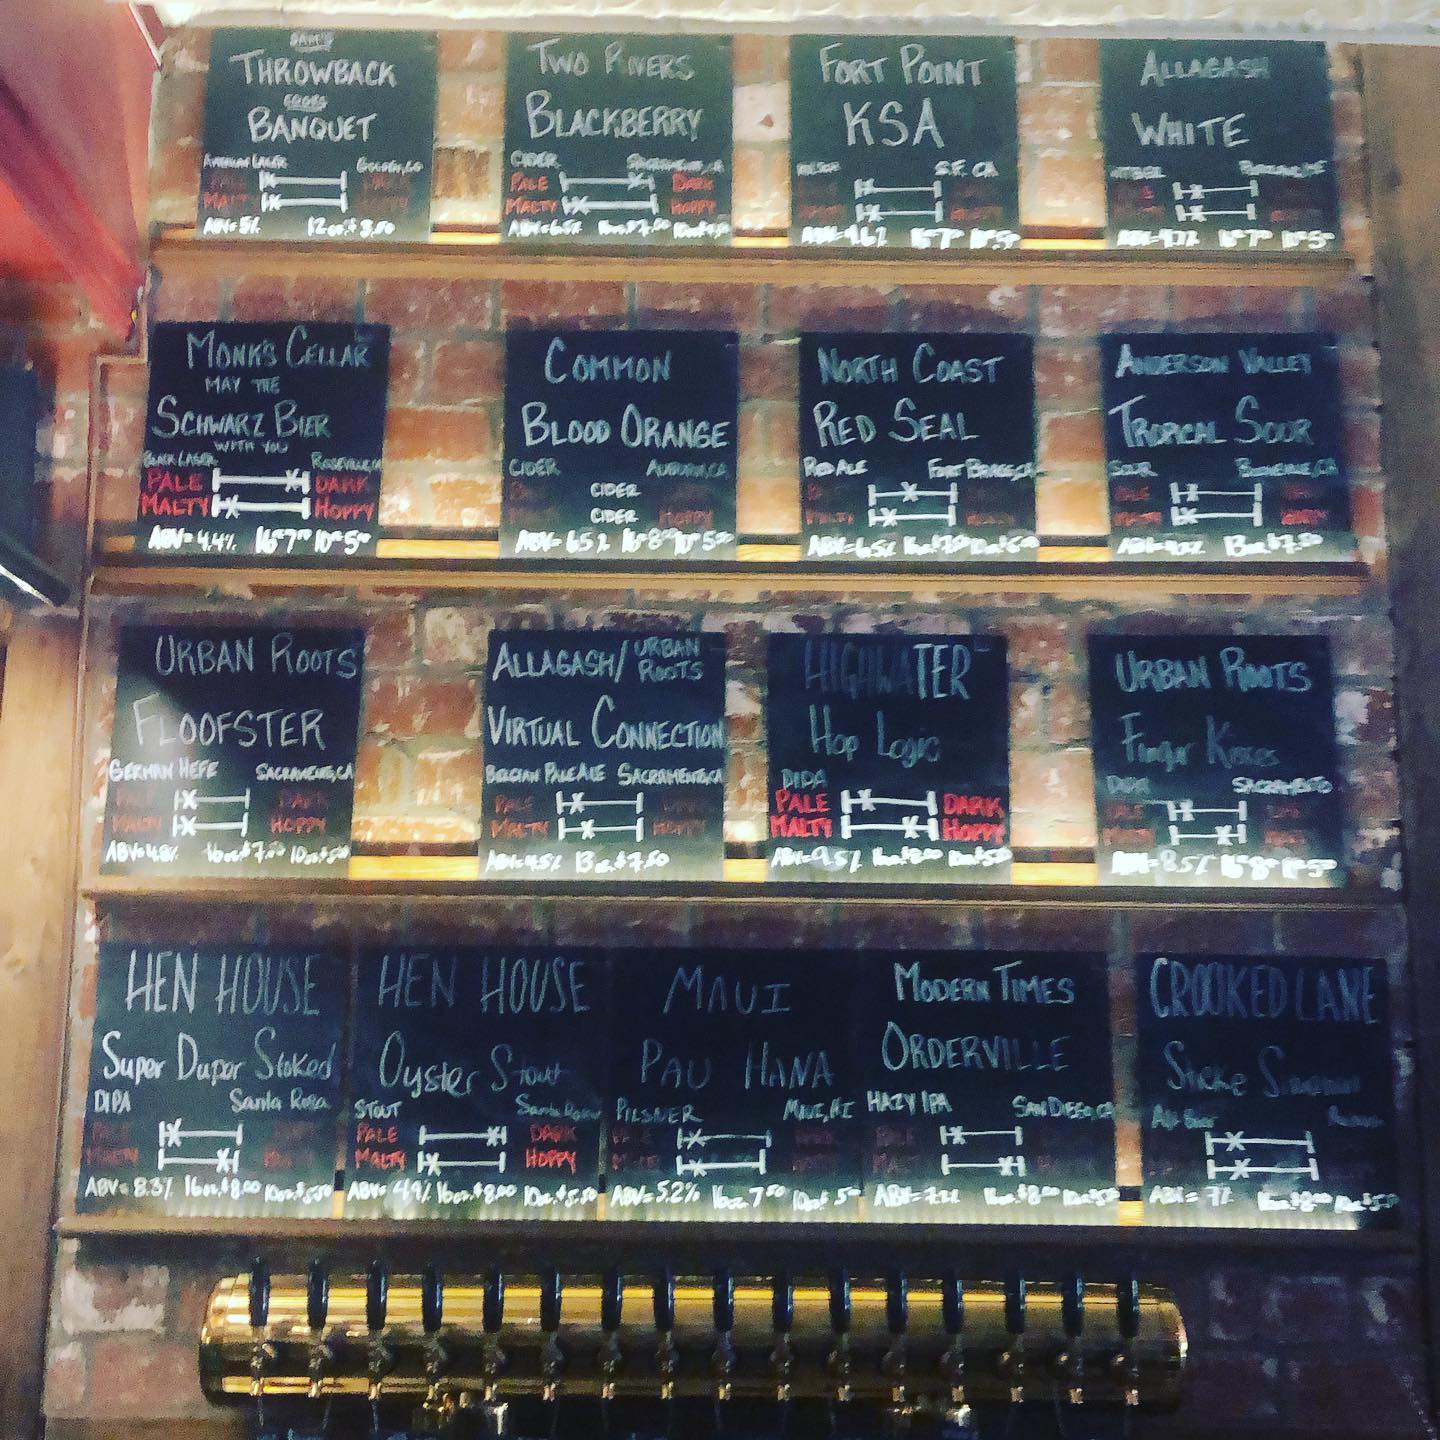 SAM'S
THROWBACK
COORS
BANQUET
AMERICAN LAGER GOLDEN, CO
MALT
ABV=5% 12oz. $3.50
TWO RIVERS
BLACKBERRY
CIDER SACRAMENTO, CA
PALE DARK
MALTY HOPPY
ABV=6.5% 16oz $7.00
FORT POINT
KSA
S.F. CA
ABV=4.6% 16oz 7.00 10oz 5.00
ALLAGASH
WHITE
16oz 7.00 10oz 5.00
MONK'S CELLAR
MAY THE
SCHWARZ BIER
WITH YOU
BLACK LAGER ROSEVILLE, CA
PALE DARK
MALTY HOPPY
ABV=4.4% 16oz 7.00 10oz 5.00
COMMON
BLOOD ORANGE
CIDER AUBURN, CA
CIDER
CIDER HOPPY
ABV=6.5% 16oz 8.00 10oz 5.00
NORTH COAST
RED SEAL
RED ALE FORT BRAGG, CA
MALTY
ABV=6.5%
ANDERSON VALLEY
TROPICAL SOUR
SOUR BOONVILLE, CA
PALE
MALTY HOPPY
ABV=4.2% 13oz. $7.50
URBAN ROOTS
FLOOFSTER
GERMAN HEFE SACRAMENTO, CA
PALE DARK
MALTY HOPPY
ABV=4.8% 16oz. $7.00 10oz $5.00
ALLAGASH/ URBAN ROOTS
VIRTUAL CONNECTION
BELGIAN PALE ALE SACRAMENTO, CA
PALE DARK
MALTY HOPPY
ABV=4.5% 13oz. $7.50
HIGHWATER
Hop Logic
DIPA
PALE DARK
MALTY HOPPY
ABV=9.5% 16oz. $8.00
URBAN ROOTS
Finger Kisses
DIPA SACRAMENTO
PALE
ABV=8.5% 16oz 8.00
HEN HOUSE
Super Duper Stoked
DIPA Santa Rosa
PALE
MALTY
ABV=8.3% 16oz. $8.00 10oz $5.50
HEN HOUSE
Oyster Stout
STOUT Santa Rosa
PALE DARK
MALTY HOPPY
ABV=4.9% 16oz. $8.00 10oz. $5.50
MAUI
PAU HANA
PILSNER MAUI, HI
ABV=5.2% 16oz 7.50 10oz 5.00
MODERN TIMES
ORDERVILLE
HAZY IPA SAN DIEGO, CA
ABV=7.2% 16oz. $8.00
CROOKED LANE
Sticke
Alt Bier
ABV=7% 16oz $8.00